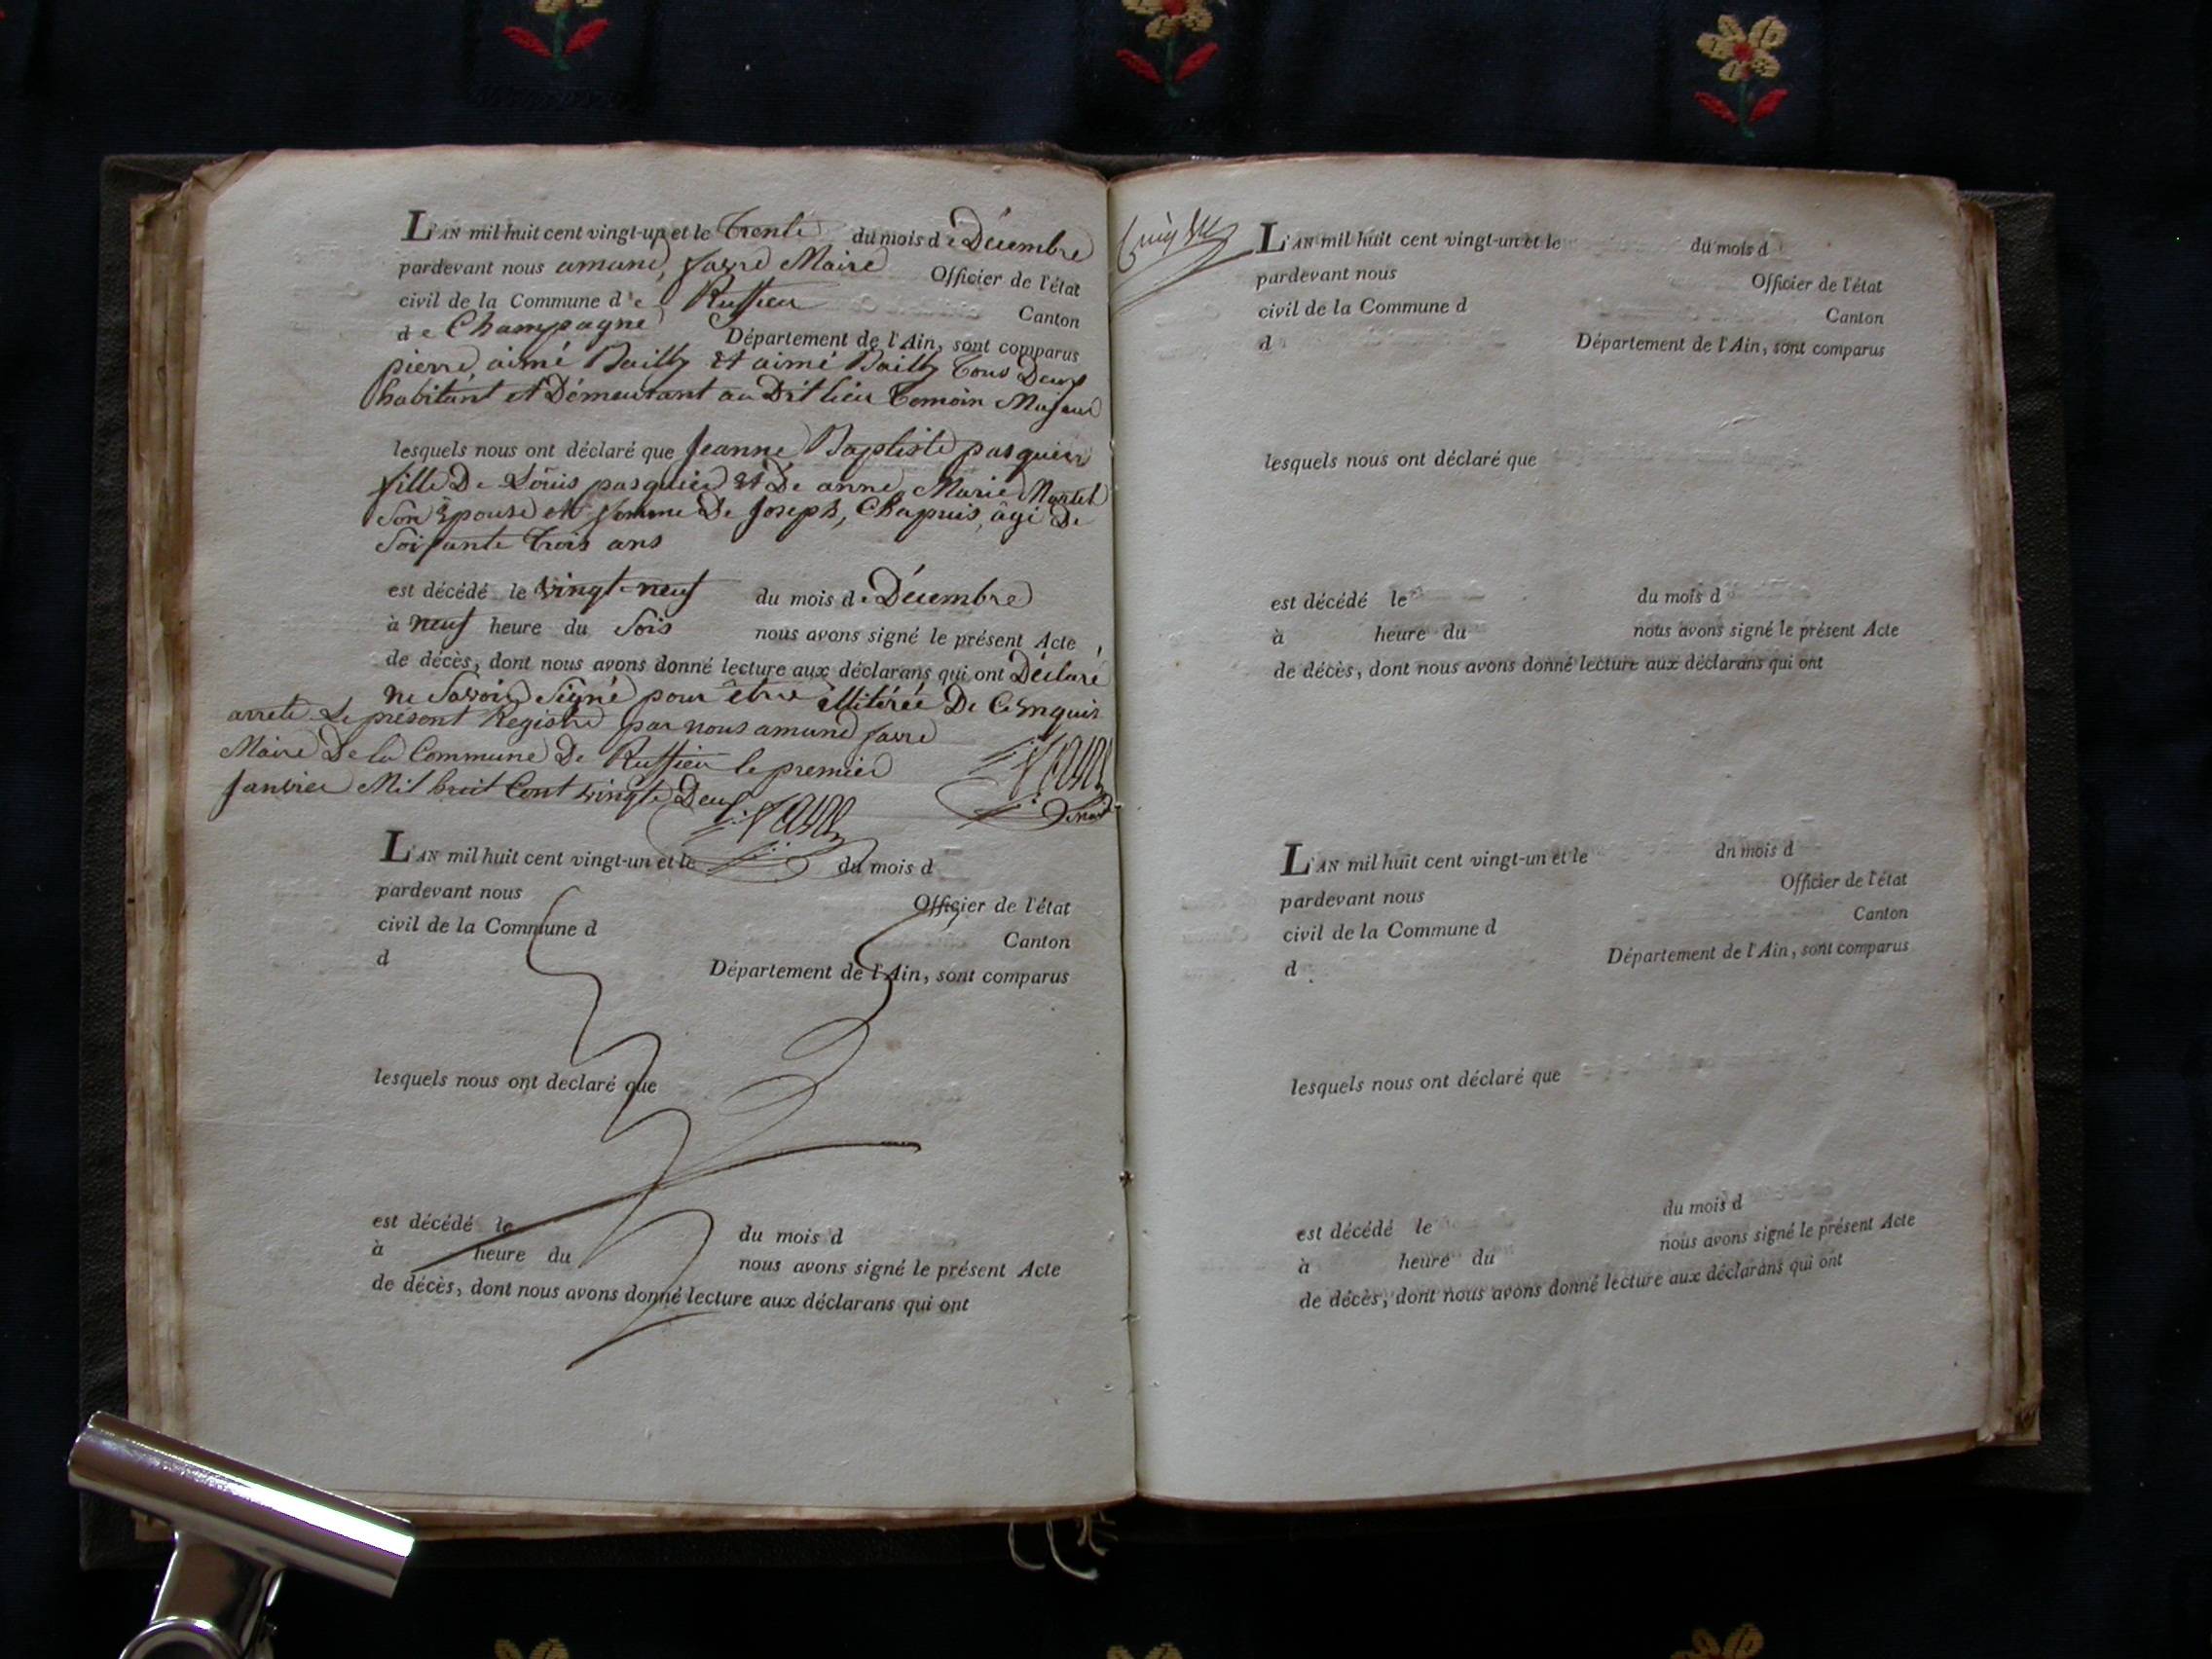 L'AN mil huit cent vingt-un et le Trente du mois de Décembre
pardevant nous amand favre Maire Officier de l'état
civil de la Commune de Ruffieu Canton
de Champagne Département de l'Ain, sont comparus
pierre aimé Bailly et aimé Bailly Tous Deux
habitant et Démeurant au Dit lieu Temoin Majeur
lesquels nous ont déclaré que Jeanne Baptiste pasquier
fille De Louis pasquier et De anne Marie Martel
Son Epouse et femme De Joseph Chapuis, âgé De
Soixante Trois ans
est décédé le vingt-neuf du mois de Décembre
à neuf heure du Soir nous avons signé le présent Acte
de décès, dont nous avons donné lecture aux déclarans qui ont Déclaré
ne Savoir Signé pour être illitérée De Ce enquis
arreté Le présent Registre par nous amand favre
Maire De la Commune De Ruffieu le premier
Janvier Mil huit Cent vingte Deux
L'AN mil huit cent vingt-un et le du mois d
pardevant nous Officier de l'état
civil de la Commune d Canton
d Département de l'Ain, sont comparus
lesquels nous ont declaré que
est décédé le du mois d
à heure du nous avons signé le présent Acte
de décès, dont nous avons donné lecture aux déclarans qui ont
L'AN mil huit cent vingt-un et le du mois d
pardevant nous Officier de l'état
civil de la Commune d Canton
d Département de l'Ain, sont comparus
lesquels nous ont déclaré que
est décédé le du mois d
à heure du nous avons signé le présent Acte
de décès, dont nous avons donné lecture aux déclarans qui ont
L'AN mil huit cent vingt-un et le dn mois d
pardevant nous Officier de l'état
civil de la Commune d Canton
d Département de l'Ain, sont comparus
lesquels nous ont déclaré que
est décédé le du mois d
à heure du nous avons signé le présent Acte
de décès, dont nous avons donné lecture aux déclarans qui ont